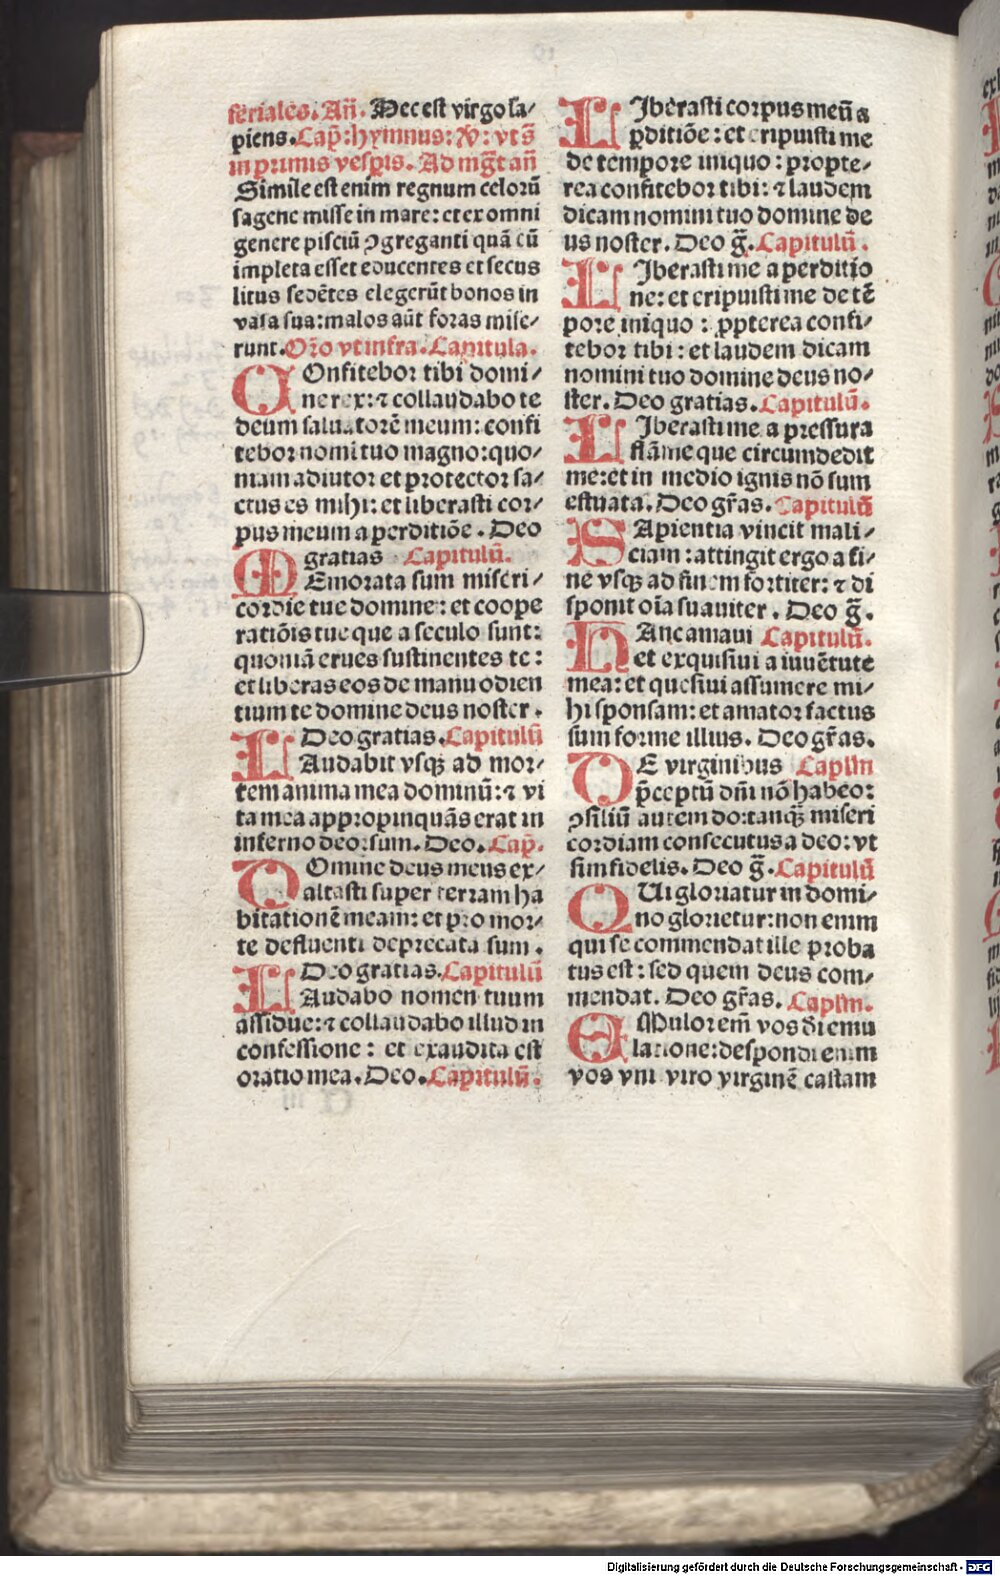 feriales. Añ. Hec est virgo sa/
piens. Cap̄: hymnus: ℣: vt s̄
in primis vesp̄is. Ad mḡt an̄
Simile est enim regnum celorū
sagene misse in mare: et ex omni
genere pisciū ꝯgreganti quā cū
impleta esset educentes et secus
litus sedētes elegerūt bonos in
vasa sua: malos aūt foras mise/
runt. Or̄o vt infra. Capitula.
COnfitebor tibi domi/
ne rex: ⁊ collaudabo te
deum saluatorē meum: confi
tebor nomi tuo magno: quo/
niam adiutor et protector fa/
ctus es mihi: et liberasti cor/
pus meum a perditiōe. Deo
gratias Capitulū.
MEmorata sum miseri/
cordie tue domine: et coope
ratiōis tue que a seculo sunt:
quoniā erues sustinentes te:
et liberas eos de manu odien
tium te domine deus noster.
Deo gratias. Capitulū
LAudabit vsq; ad mor/
tem anima mea dominū: ⁊ vi
ta mea appropinquās erat in
inferno deorsum. Deo. Cap̄.
DOmine deus meus ex/
altasti super terram ha
bitationē meam: et pro mor/
te defluenti deprecata sum.
Deo gratias. Capitulū
LAudabo nomen tuum
assidue: ⁊ collaudabo illud in
confessione: et exaudita est
oratio mea. Deo. Capitulū.
LIberasti corpus meū a
ꝑditiōe: et eripuisti me
de tempore iniquo: propte/
rea confitebor tibi: ⁊ laudem
dicam nomini tuo domine de
us noster. Deo ḡ. Capitulū.
LIberasti me a perditio
ne: et eripuisti me de tē
pore iniquo: ꝓpterea confi/
tebor tibi: et laudem dicam
nomini tuo domine deus no/
ster. Deo gratias. Capitulū.
LIberasti me a pressura
flāme que circumdedit
me: et in medio ignis nō sum
estuata. Deo gr̄as. Capitulū
SApientia vincit mali/
ciam: attingit ergo a fi/
ne vsq; ad finem fortiter: ⁊ di
sponit oīa suauiter. Deo ḡ.
HAnc amaui Capitulū.
et exquisiui a iuuētute
mea: et quesiui assumere mi/
hi sponsam: et amator factus
sum forme illius. Deo gr̄as.
DE virginibus Caplm
p̄ceptū dn̄i nō habeo:
ꝯsiliū autem do: tanq̄ miseri
cordiam consecutus a deo: vt
sim fidelis. Deo ḡ. Capitulū
QUi gloriatur in domi/
no glorietur: non enim
qui se commendat ille proba
tus est: sed quem deus com/
mendat. Deo gr̄as. Caplm.
EMulor em̄ vos dī emu
latione: despondi enim
vos vni viro virginē castam
Digitalisierung gefördert durch die Deutsche Forschungsgemeinschaft - DFG